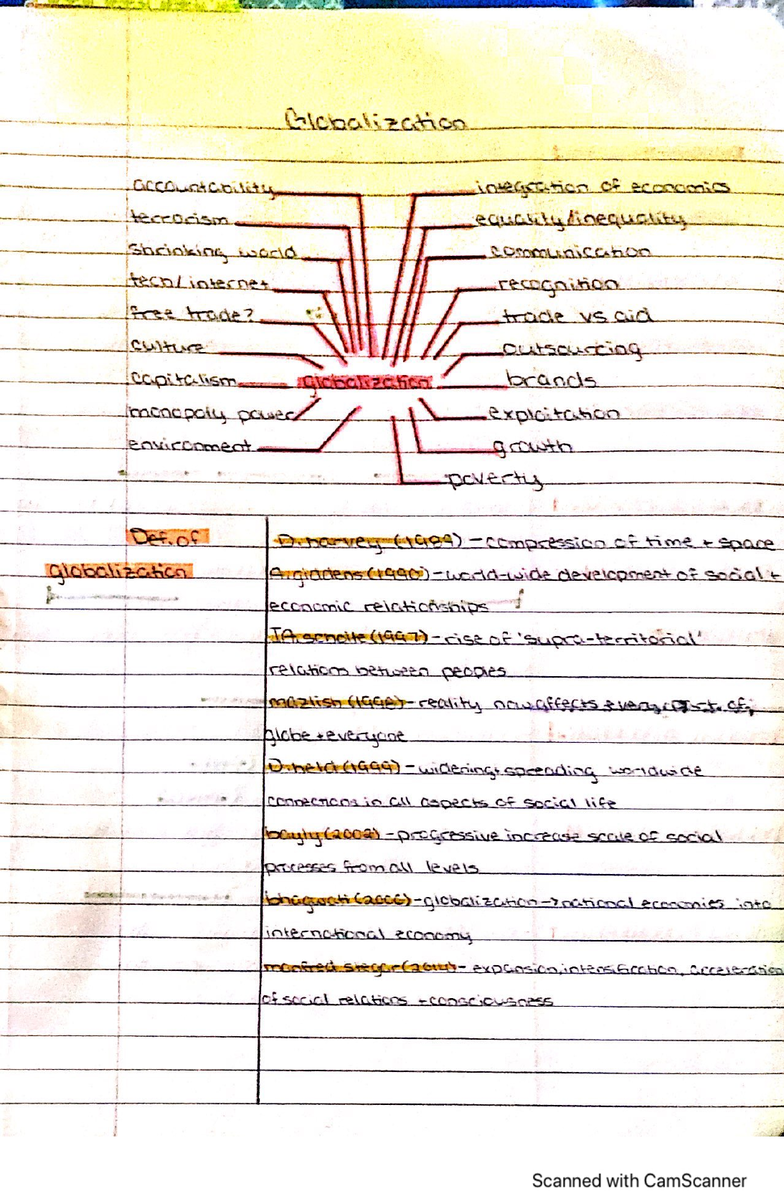 Globalization
accountability
integration of economics
terrorism
equality/inequality
shrinking world
communication
tech/internet
recognition
free trade?
trade vs aid
culture
outsourcing
capitalism
globalization
brands
monopoly power
exploitation
environment
growth
poverty
Def. of
globalization
D. harvey (1989) - compression of time + space
A. giddens (1990) - world-wide development of social +
economic relationships
JA. scholte (1997) - rise of 'supra-territorial'
relations between peoples
mazlish (1998) - reality now affects every of
globe + everyone
D. held (1999) - widening + spreading worldwide
connections in all aspects of social life
bayly (2002) - progressive increase scale of social
processes from all levels
bhagwati (2006) - globalization → national economies into
international economy
manfred steger (2014) - expansion, intensification, acceleration
of social relations + consciousness
Scanned with CamScanner